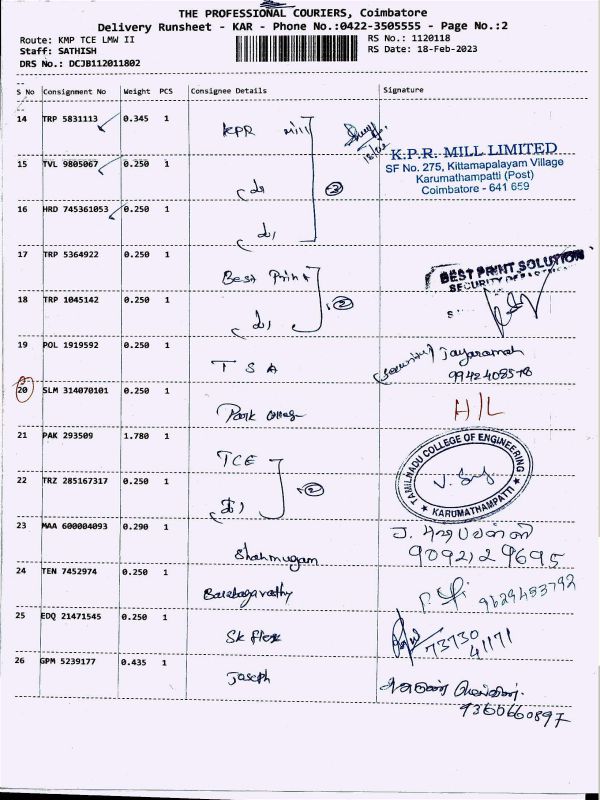 THE PROFESSIONAL COURIERS, Coimbatore
Delivery Runsheet - KAR - Phone No.:0422-3505555 - Page No.:2
Route: KMP TCE LMW II
Staff: SATHISH
DRS No.: DCJB112011802
RS No.: 1120118
RS Date: 18-Feb-2023
S No Consignment No Weight PCS Consignee Details Signature
14 TRP 5831113 0.345 1 KPR Mill
K.P.R. MILL LIMITED
SF No. 275, Kittamapalayam Village
Karumathampatti (Post)
Coimbatore - 641 659
15 TVL 9805067 0.250 1
3
16 HRD 745361053 0.250 1
17 TRP 5364922 0.250 1 Best Print
BEST PRINT SOLUTION
18 TRP 1045142 0.250 1
2
19 POL 1919592 0.250 1 TSA
Security Jayaraman
9942408578
20 SLM 314070101 0.250 1 Park College H/L
21 PAK 293509 1.780 1 TCE
TAMILNADU COLLEGE OF ENGINEERING
KARUMATHAMPATTI
22 TRZ 285167317 0.250 1
2
23 MAA 600004093 0.290 1 Shahmugam
9092129695
24 TEN 7452974 0.250 1
9629453792
25 EDQ 21471545 0.250 1 Sk flex
73730
41171
26 GPM 5239177 0.435 1 Joseph
9360660897